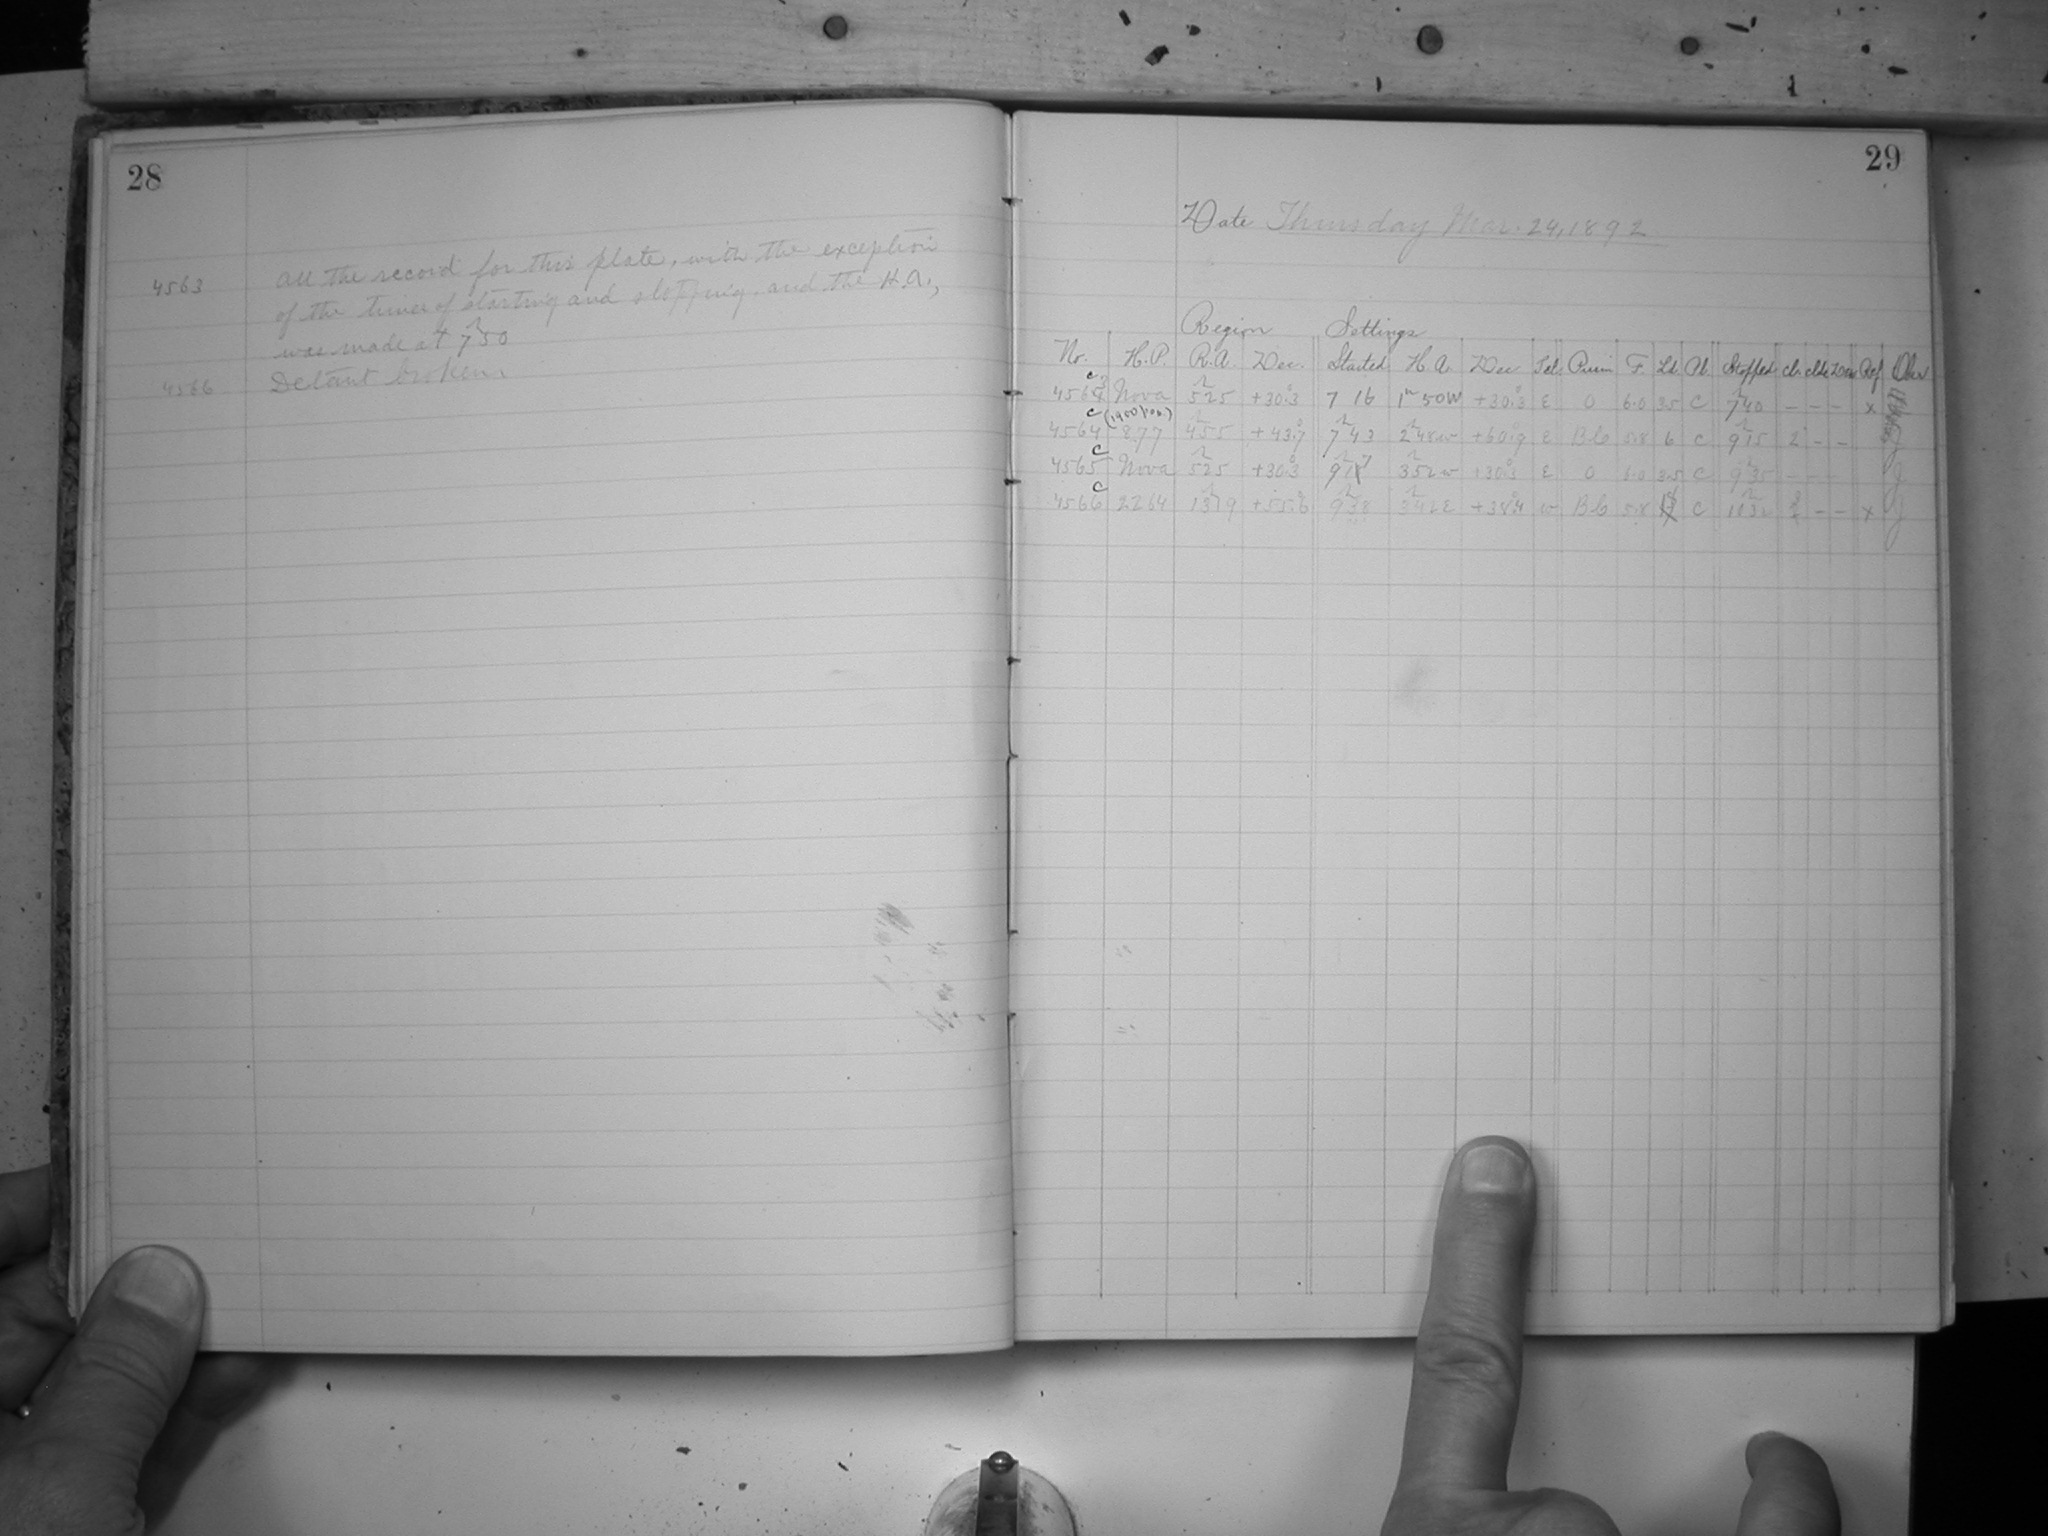 28
4563 All the record for this plate, with the exception
of the times of starting and stopping, and the H.A.,
was made at 7h50
4566 Detent broken
29
Date Thursday Mar. 24, 1892
Region Settings
No. H.P. R.A. Dec. Started H.A. Dec Tel. Prism F. Ld. Pl. Stopped Cl. Clds Dew Ref Obs
c 4563 Nova 5h25 +30°.3 7 16 1h50W +30°.3 E O 6.0 3.5 C 7h40 – – – x
(1900 pos.)
c 4564 877 4h55 +43°.7 7h43 2h48w +60°.9 E B6 5.8 6 C 9h15 2 – – J
c 4565 Nova 5h25 +30°.3 9h17 3h52w +30°.3 E O 6.0 3.5 C 9h35 – – – J
c 4566 2264 13h19 +55°.6 9h38 3h42E +38°.4 w B6 5.8 C 10h32 – – x J